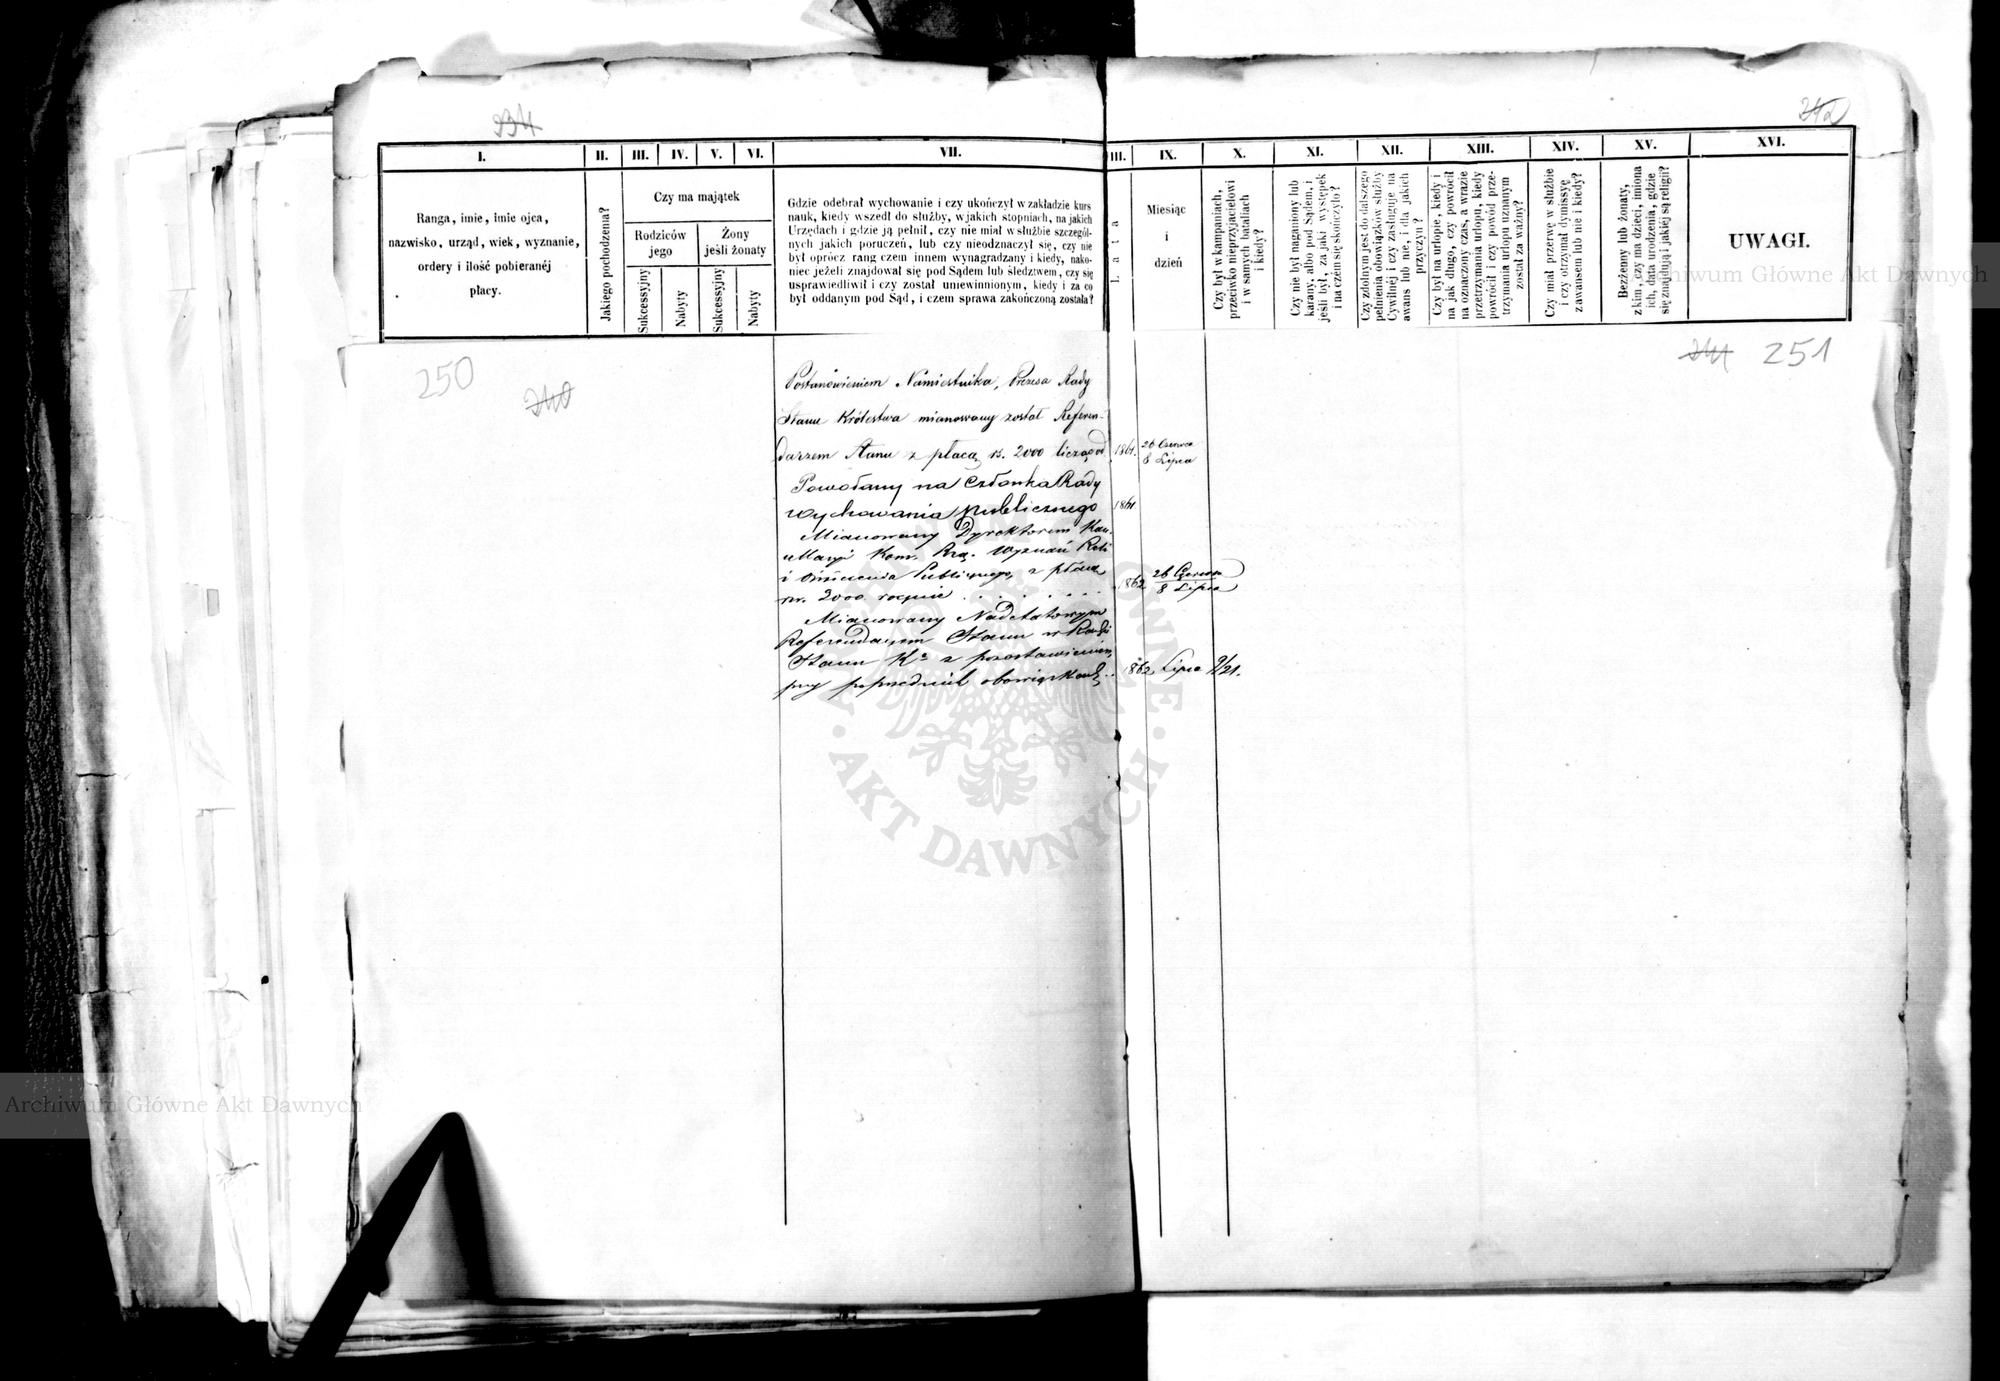 234
242
I. II. III. IV. V. VI. VII. III. IX. X. XI. XII. XIII. XIV. XV. XVI.
Ranga, imie, imie ojca,
nazwisko, urząd, wiek, wyznanie,
ordery i ilość pobieranéj
płacy.
Jakiego pochodzenia?
Czy ma majątek
Rodziców
jego
Żony
jeśli żonaty
Sukcessyjny
Nabyty
Sukcessyjny
Nabyty
Gdzie odebrał wychowanie i czy ukończył w zakładzie kurs
nauk, kiedy wszedł do służby, w jakich stopniach, na jakich
Urzędach i gdzie ją pełnił, czy nie miał w służbie szczegól-
nych jakich poruczeń, lub czy nieodznaczył się, czy nie
był oprócz rang czem innem wynagradzany i kiedy, nako-
niec jeżeli znajdował się pod Sądem lub śledztwem, czy się
usprawiedliwił i czy został uniewinnionym, kiedy i za co
był oddanym pod Sąd, i czem sprawa zakończoną została?
Lata
Miesiąc
i
dzień
Czy był w kampaniach,
przeciwko nieprzyjacielowi
i w samych bataliach
i kiedy?
Czy nie był naganiony lub
karany, albo pod Sądem, i
jeśli był, za jaki występek
i na czém się skończyło?
Czy zdolnym jest do dalszego
pełnienia obowiązków służby
Cywilnéj i czy zasługuje na
awans lub nie, i dla jakich
przyczyn?
Czy był na urlopie, kiedy i
na jak długo, czy powrócił
na oznaczony czas, a w razie
przetrzymania urlopu, kiedy
powrócił i czy powód prze-
trzymania urlopu uznanym
został za ważny?
Czy miał przerwę w służbie
i czy otrzymał dymissyę
z awansem lub nie i kiedy?
Bezżenny lub żonaty,
z kim, czy ma dzieci, imiona
ich, data urodzenia, gdzie
się znajdują i jakiéj są religii?
UWAGI.
Archiwum Główne Akt Dawnych
250
240
241 251
Postanowieniem Namiestnika, Prezesa Rady
Stanu Królestwa mianowany został Referen-
darzem Stanu z płacą rs. 2000 licząc od 1861. 26 Czerwca
8 Lipca
Powołany na Członka Rady
Wychowania publicznego 1861
Mianowany Dyrektorem Kan-
Kom. Rzą. Wyznań Reli
i Oświecenia Publicznego, z płacą
rs. 2000 rocznie . . . . . . 1862 26 Czerwca
8 Lipca
Mianowany Nadetatowym
Referendarzem Stanu w Radzie
Stanu z pozostawieniem
przy poprzednich obowiązkach .. 1862 Lipca 9/21.
AKT DAWNYCH
Archiwum Główne Akt Dawnych